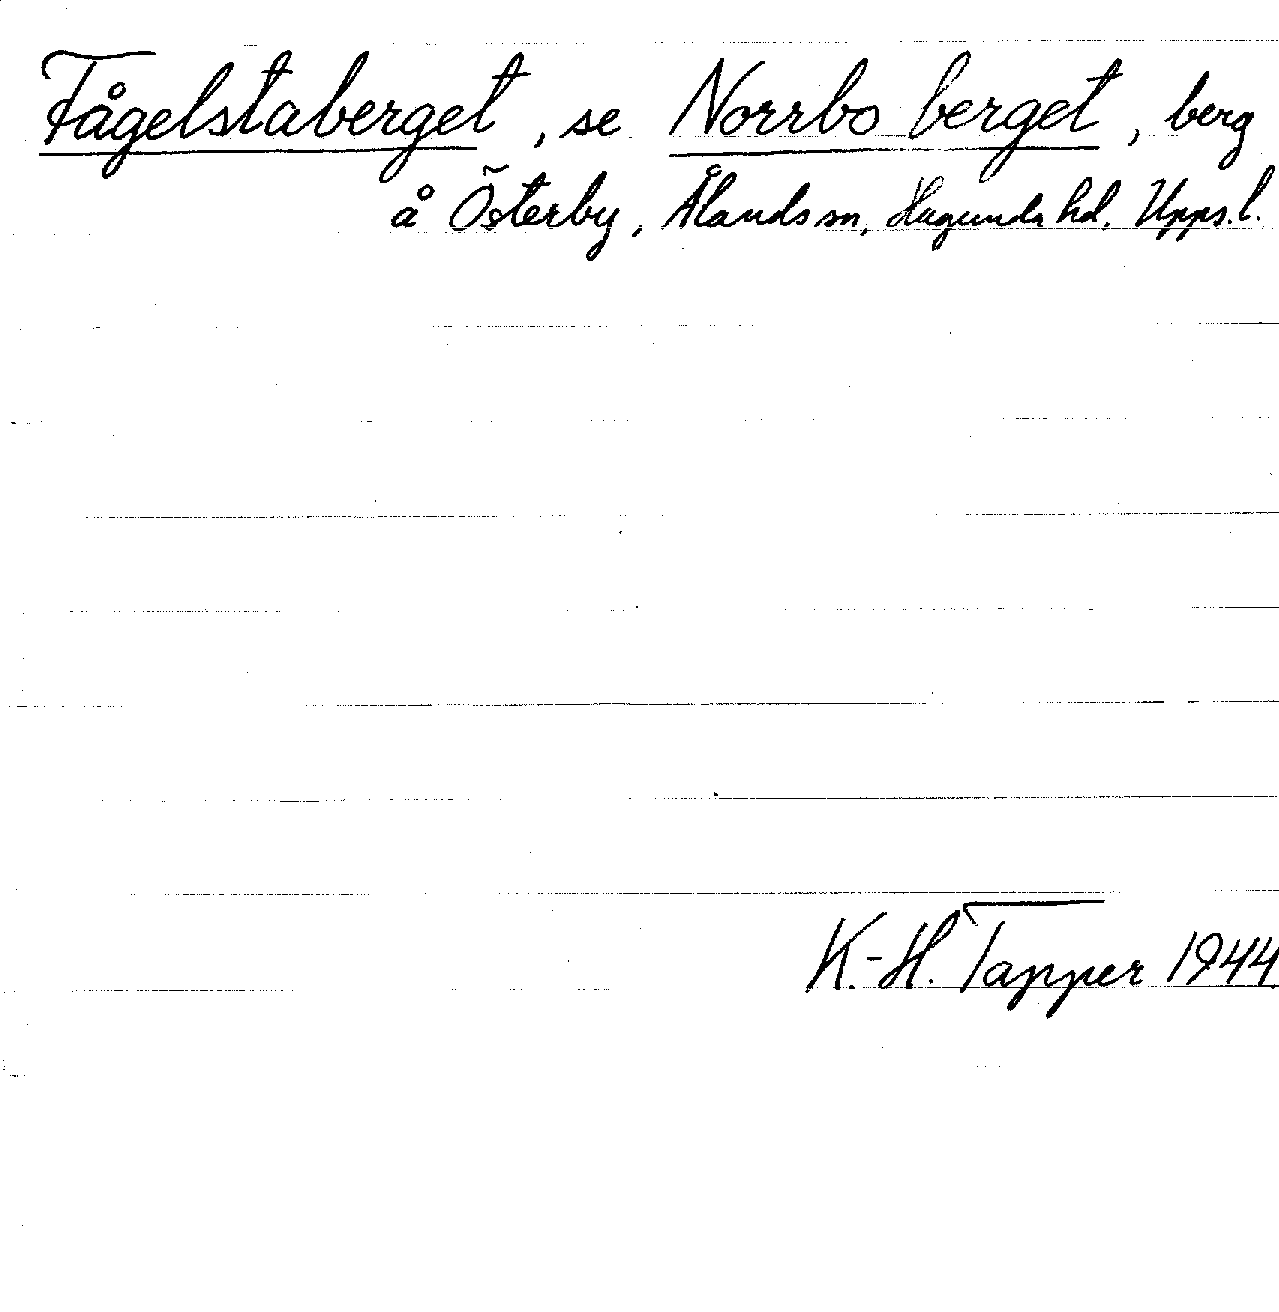 Fågelstaberget, se Norrbo berget, berg
å Österby, Ålands sn, Hagunda hd. Upps. l.
K.-H. Tapper 1944